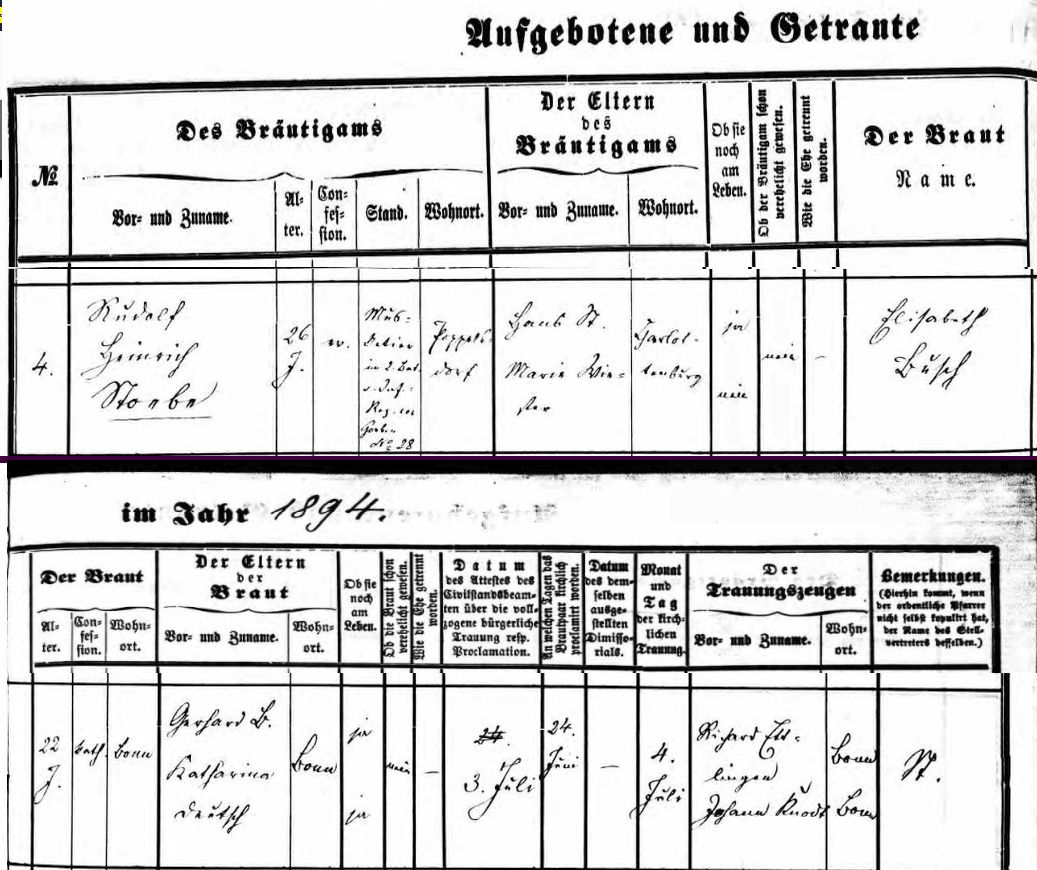 Aufgebotene und Getraute
№
Des Bräutigams
Vor- und Zuname.
Al-
ter.
Con-
fes-
sion.
Stand.
Wohnort.
Der Eltern
des
Bräutigams
Vor- und Zuname.
Wohnort.
Ob sie
noch
am
Leben.
Ob der Bräutigam schon
verehelicht gewesen.
Wie die Ehe getrennt
worden.
Der Braut
Name.
4.
Rudolf
Heinrich
Stoebe
26
J.
ev.
Mus-
ketier
im 2. Bat.
d. Inf.-
Reg. von
Goeben
No 28
Poppels-
dorf
Hans St.
Marie Wie-
ster
Charlot-
tenburg
ja
nein
nein
–
Elisabeth
Busch
im Jahr 1894.
Der Braut
Al-
ter.
Con-
fes-
sion.
Wohn-
ort.
Der Eltern
der
Braut
Vor- und Zuname.
Wohn-
ort.
Ob sie
noch
am
Leben.
Ob die Braut schon
verehelicht gewesen.
Wie die Ehe getrennt
worden.
Datum
des Attestes des
Civilstandsbeam-
ten über die voll-
zogene bürgerliche
Trauung resp.
Proclamation.
An welchen Tagen das
Brautpaar kirchlich
proclamirt worden.
Datum
des dem-
selben
ausge-
stellten
Dimisso-
rials.
Monat
und
Tag
der kirch-
lichen
Trauung.
Der
Trauungszeugen
Vor- und Zuname.
Wohn-
ort.
Bemerkungen.
(Hierhin kommt, wenn
der ordentliche Pfarrer
nicht selbst kopulirt hat,
der Name des Stell-
vertreters desselben.)
22
J.
kath.
Bonn
Gerhard B.
Katharina
Deutsch
Bonn
ja
ja
nein
–
24.
3. Juli
24.
Juni
–
4.
Juli
Richard Ett-
lingen
Johann Knodt
Bonn
Bonn
St.